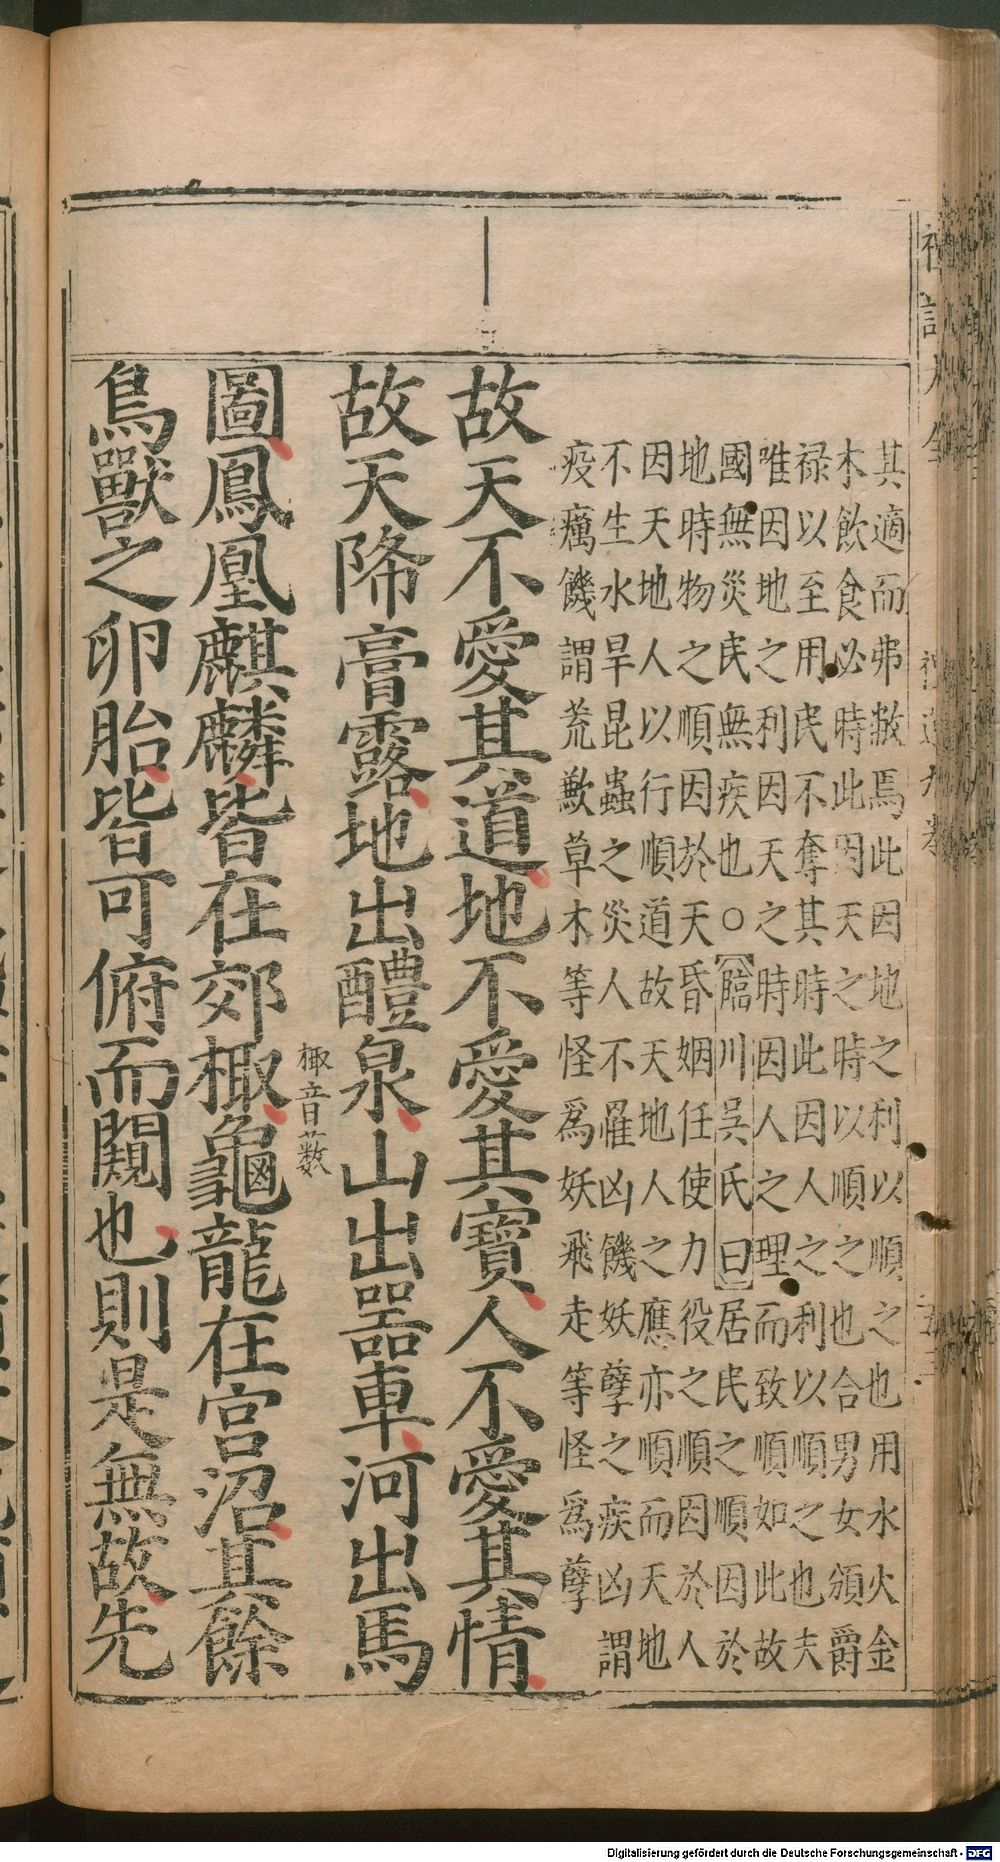 其適而弗敝焉此因地之利以順之也用水火金
木飲食必時此因天之時以順之也合男女頒爵
禄以至用民不奪其時此因人之利以順之也夫
唯因地之利因天之時因人之理而致順如此故
國無災民無疾也○臨川吳氏曰居民之順因於
地時物之順因於天昏姻任使力役之順因於人
因天地人以行順道故天地人之應亦順而天地
不生水旱昆蟲之災人不罹凶饑妖孽之疾凶謂
疫癘饑謂荒歉草木等怪爲妖飛走等怪爲孽
故天不愛其道地不愛其寶人不愛其情
故天降膏露地出醴泉山出器車河出馬
圖鳳凰麒麟皆在郊棷棷音藪龜龍在宮沼其餘
鳥獸之卵胎皆可俯而闚也則是無故先
Digitalisierung gefördert durch die Deutsche Forschungsgemeinschaft - DFG